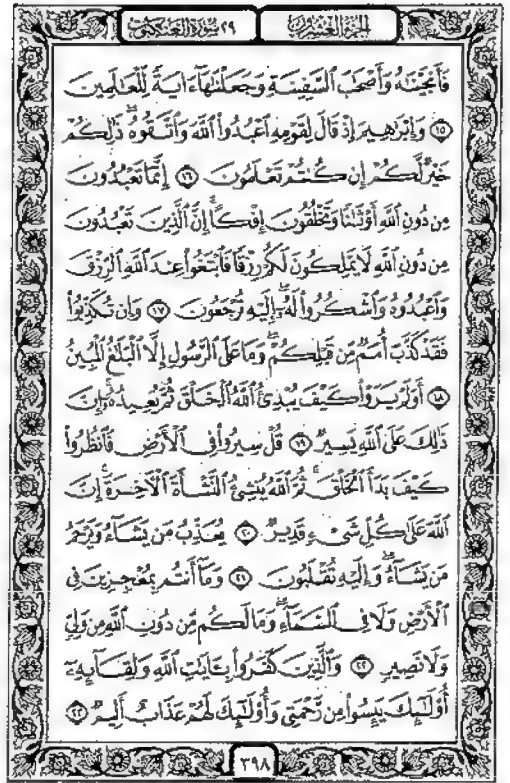 الجزء العشرون ٢٩ سورة العنكبوت
فَأَنجَيْنَٰهُ وَأَصْحَٰبَ ٱلسَّفِينَةِ وَجَعَلْنَٰهَآ ءَايَةً لِّلْعَٰلَمِينَ
۝١٥ وَإِبْرَٰهِيمَ إِذْ قَالَ لِقَوْمِهِ ٱعْبُدُوا۟ ٱللَّهَ وَٱتَّقُوهُ ۖ ذَٰلِكُمْ
خَيْرٌ لَّكُمْ إِن كُنتُمْ تَعْلَمُونَ ۝١٦ إِنَّمَا تَعْبُدُونَ
مِن دُونِ ٱللَّهِ أَوْثَٰنًا وَتَخْلُقُونَ إِفْكًا ۚ إِنَّ ٱلَّذِينَ تَعْبُدُونَ
مِن دُونِ ٱللَّهِ لَا يَمْلِكُونَ لَكُمْ رِزْقًا فَٱبْتَغُوا۟ عِندَ ٱللَّهِ ٱلرِّزْقَ
وَٱعْبُدُوهُ وَٱشْكُرُوا۟ لَهُۥٓ ۖ إِلَيْهِ تُرْجَعُونَ ۝١٧ وَإِن تُكَذِّبُوا۟
فَقَدْ كَذَّبَ أُمَمٌ مِّن قَبْلِكُمْ ۖ وَمَا عَلَى ٱلرَّسُولِ إِلَّا ٱلْبَلَٰغُ ٱلْمُبِينُ
۝١٨ أَوَلَمْ يَرَوْا۟ كَيْفَ يُبْدِئُ ٱللَّهُ ٱلْخَلْقَ ثُمَّ يُعِيدُهُۥٓ ۚ إِنَّ
ذَٰلِكَ عَلَى ٱللَّهِ يَسِيرٌ ۝١٩ قُلْ سِيرُوا۟ فِى ٱلْأَرْضِ فَٱنظُرُوا۟
كَيْفَ بَدَأَ ٱلْخَلْقَ ۚ ثُمَّ ٱللَّهُ يُنشِئُ ٱلنَّشْأَةَ ٱلْءَاخِرَةَ ۚ إِنَّ
ٱللَّهَ عَلَىٰ كُلِّ شَىْءٍ قَدِيرٌ ۝٢٠ يُعَذِّبُ مَن يَشَآءُ وَيَرْحَمُ
مَن يَشَآءُ ۖ وَإِلَيْهِ تُقْلَبُونَ ۝٢١ وَمَآ أَنتُم بِمُعْجِزِينَ فِى
ٱلْأَرْضِ وَلَا فِى ٱلسَّمَآءِ ۖ وَمَا لَكُم مِّن دُونِ ٱللَّهِ مِن وَلِىٍّ
وَلَا نَصِيرٍ ۝٢٢ وَٱلَّذِينَ كَفَرُوا۟ بِـَٔايَٰتِ ٱللَّهِ وَلِقَآئِهِۦٓ
أُو۟لَٰٓئِكَ يَئِسُوا۟ مِن رَّحْمَتِى وَأُو۟لَٰٓئِكَ لَهُمْ عَذَابٌ أَلِيمٌ ۝٢٣
٣٩٨